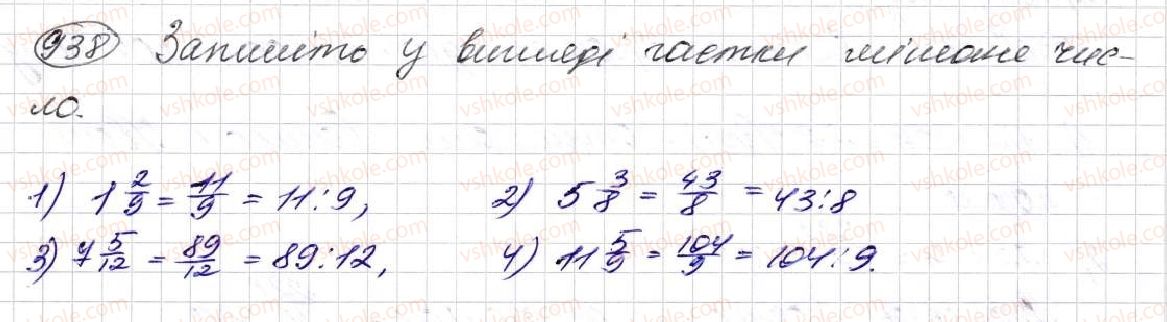 938 Запишіть у вигляді частки мішане чис-
ло.
1) 1 2/9 = 11/9 = 11:9, 2) 5 3/8 = 43/8 = 43:8
3) 7 5/12 = 89/12 = 89:12, 4) 11 5/9 = 104/9 = 104:9.